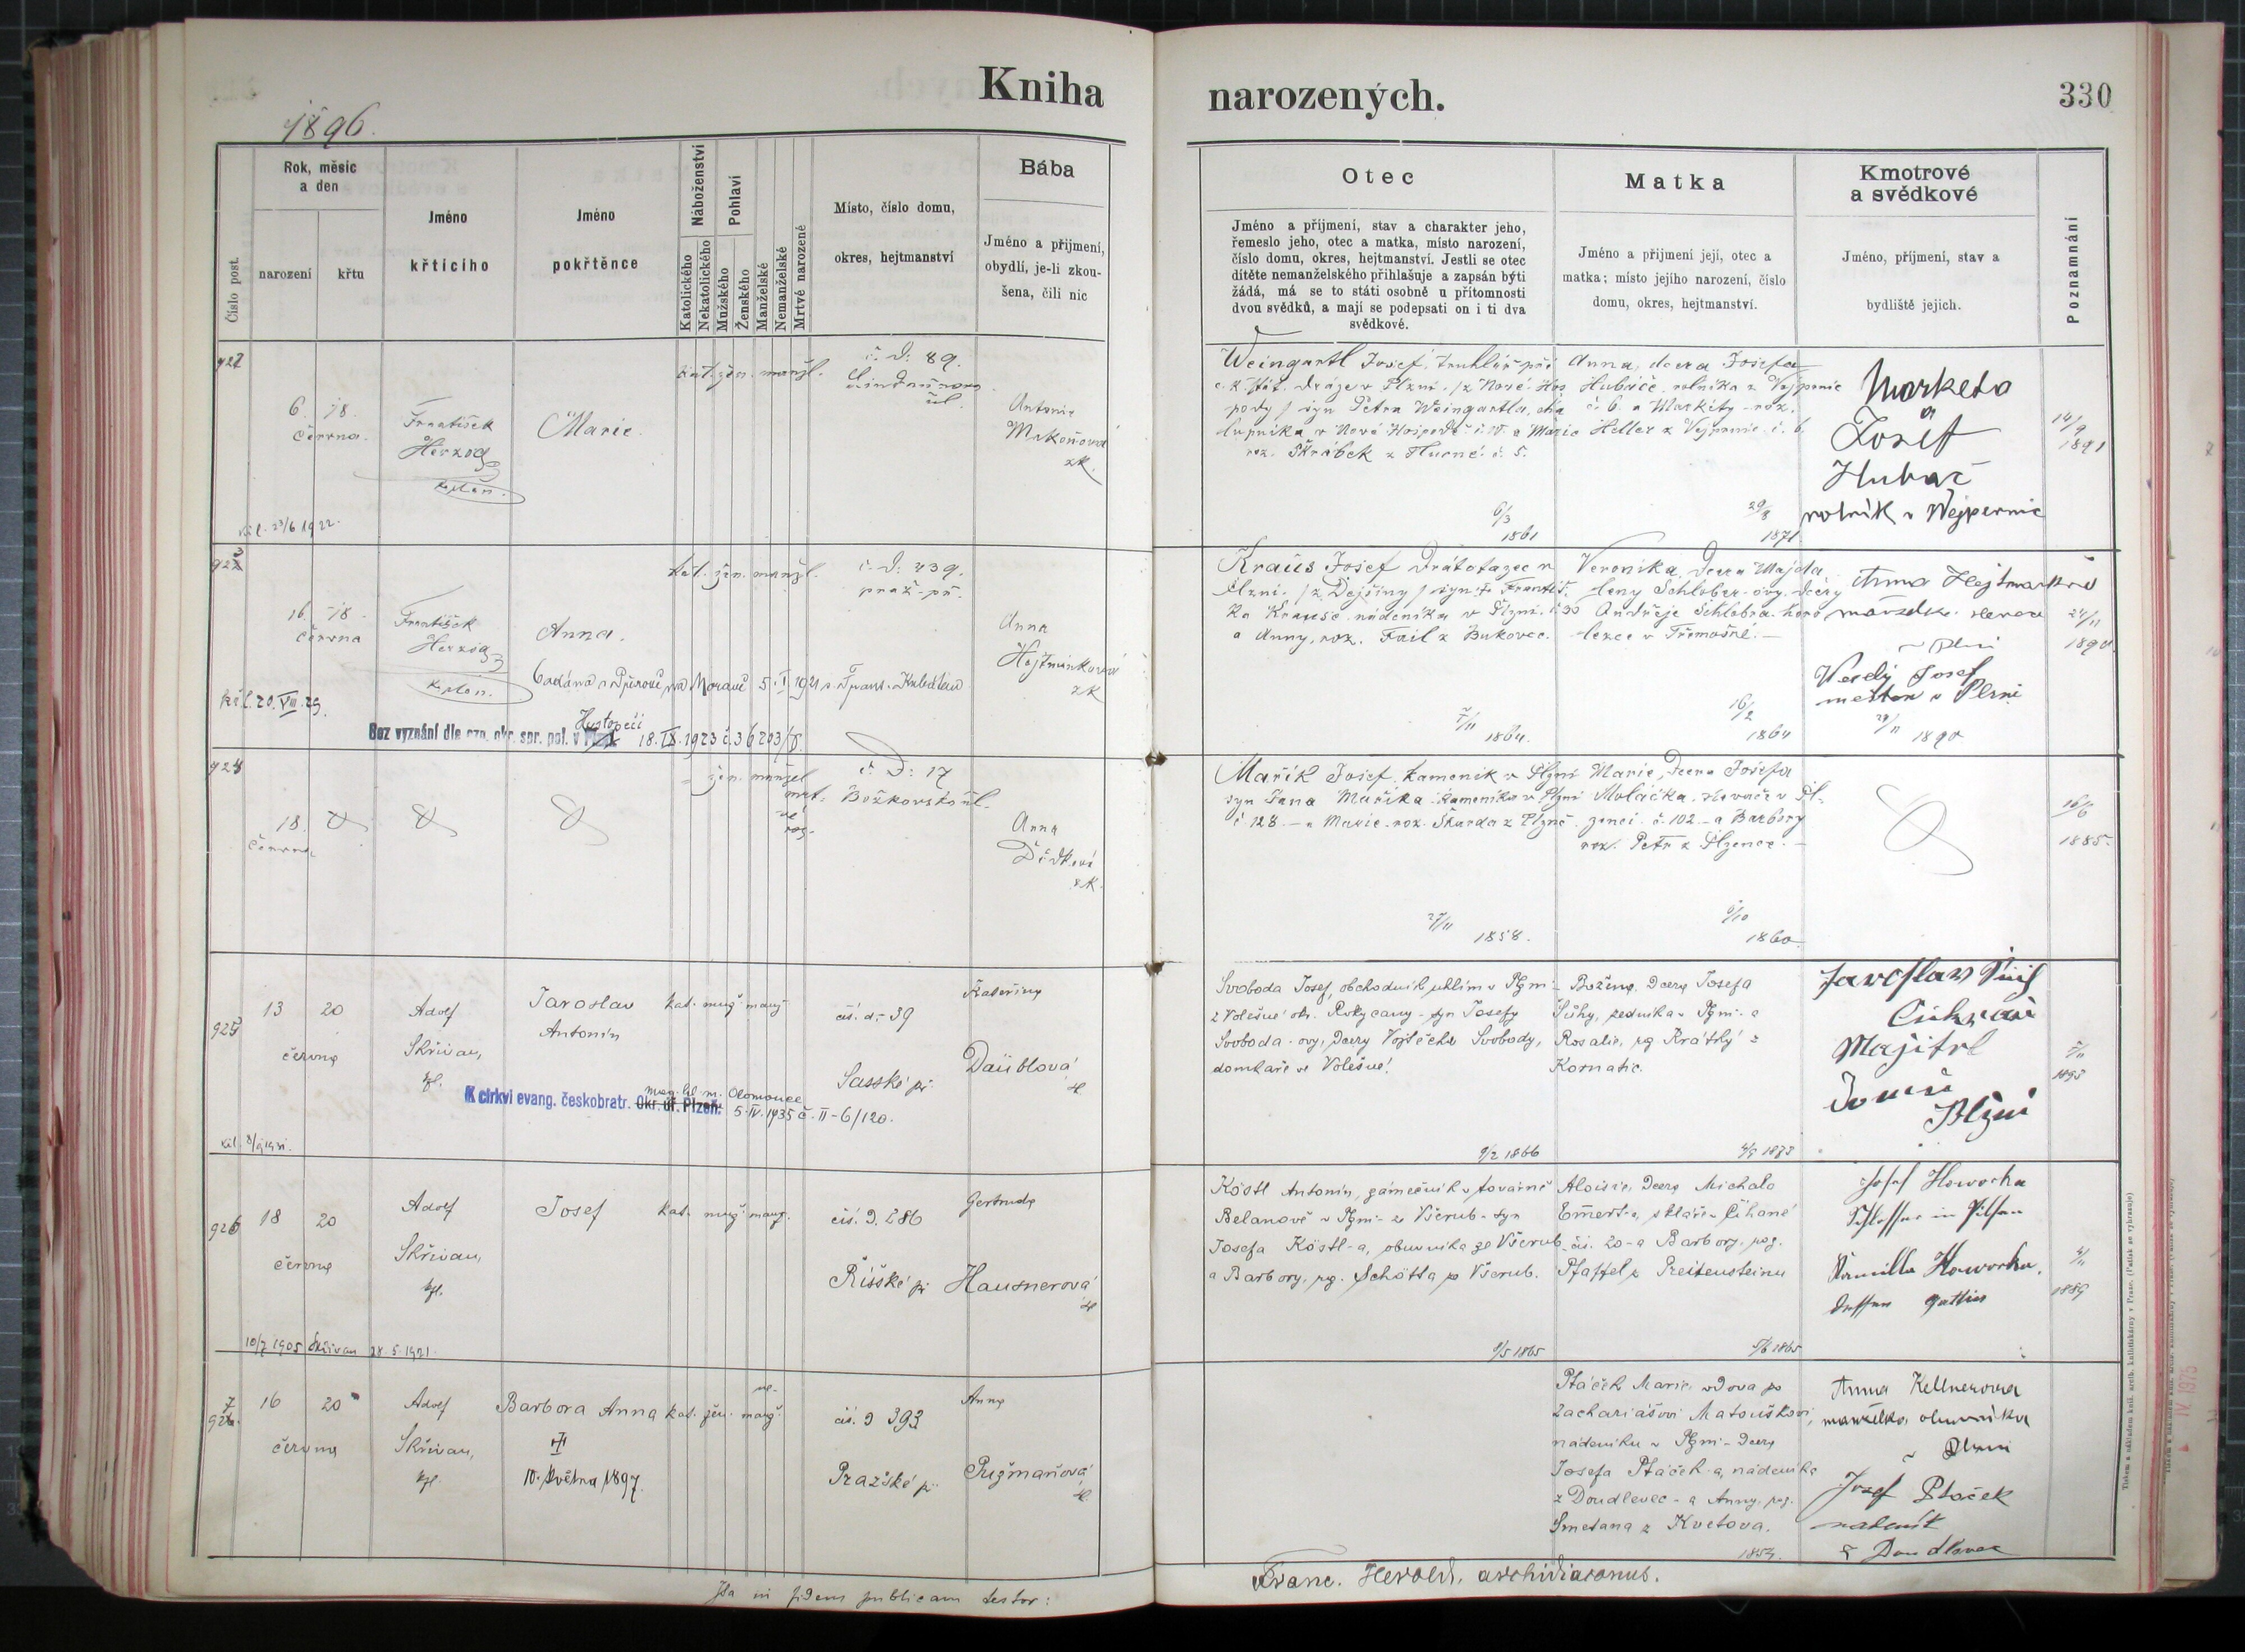 Kniha
narozených.
330
1896.
Číslo post.
Rok, měsíc
a den
narození
křtu
Jméno
křtícího
Jméno
pokřtěnce
Náboženství
Katolického
Nekatolického
Pohlaví
Mužského
Ženského
Manželské
Nemanželské
Mrtvé narozené
Místo, číslo domu,
okres, hejtmanství
Bába
Jméno a přijmení,
obydlí, je-li zkou-
šena, čili nic
Otec
Jméno a příjmení, stav a charakter jeho,
řemeslo jeho, otec a matka, místo narození,
číslo domu, okres, hejtmanství. Jestli se otec
dítěte nemanželského přihlašuje a zapsán býti
žádá, má se to státi osobně u přítomnosti
dvou svědků, a mají se podepsati on i ti dva
svědkové.
Matka
Jméno a přijmení její, otec a
matka; místo jejího narození, číslo
domu, okres, hejtmanství.
Kmotrové
a svědkové
Jméno, příjmení, stav a
bydliště jejich.
Poznamnání
6. 18.
června.
František
Herzog
kaplan.
Marie.
kat. žen. manžl.
č. d: 89.
ul.
Antonie
zk.
Weingartl Josef, truhlář při
c. k. stát. dráze v Plzni, /z Nové Hos
pody/ syn Petra Weingartla, cha
lupníka v Nové Hospodě
roz. Škrábek z Hucné č. 5.
6/3
1861
Anna, dcera Josefa
Hubáče, rolníka z Vejprnic
č. 6. a Markéty roz.
Heller z Vejprnic č. 6.
29/8
1871
Marketa
a
Josef
Hubač
rolník v Wejpernic
14/9
1891
23/6 1922.
923
16. 18.
června
František
Herzog
kaplan.
Anna.
kat. žen. manžl.
č. d: 239.
praž. př.
Anna
zk
5. I. 1921
20. VIII. 29.
Bez vyznání dle ozn. okr. spr. pol. v
Hustopeči
18. IX. 1923 č. 36203/
Kraus Josef drátotažec v
Plzni /z Dejšiny/ syn Františ
ka Krause nádeníka v Plzni
a Anny, roz. Fail z Bukovec.
1864.
Veronika, dcera Majda
leny Schlober-ovy, dcery
Andreje Schlobra, horo
lezce v Třemošné.
16/2
1864
Anna Hejtmanková
Veselý Josef
mešťan v Plzni
1890
24/11
1890
924
18.
června
žen. manžel
č. D: 17
Božkovská ul.
Anna
zk.
Mařík Josef, kameník v Plzni
syn Jana Maříka kameníka v Plzni
č 128. a Marie roz. Škarda z Plzně.
27/11
1858.
Marie, dcera Josefa
Moláčka, kováře v Pl-
zenci č. 102. a Barbory
roz. Petr z Plzence.
9/10
1860
16/6
1885.
925
13 20
června
Adolf
Skřivan,
kpl.
Jaroslav
Antonín
kat. muž. manž.
čís. d. 39
Sasské př.
Kateřina
Daüblová
K církvi evang. českobratr. Okr. úř. Plzeň.
mag. hl. m. Olomouce
5. IV. 1935 č. II-6/120.
Svoboda Josef, obchodník uhlím v Plzni
z Volešné okr. Rokycany syn Josefy
Svoboda-ovy, dcery Vojtěcha Svobody,
domkáře ve Volešné
9/2 1866
Božena, dcera Josefa
Šůhy, zedníka v Plzni a
Rosalie, roz. Krátký z
Kornatic.
Jaroslav
Majitel
Domu
Plzni
926
18 20
června
Adolf
Skřivan,
kpl.
Josef
kat. muž. manž.
čís. d. 286
Říšské př.
Gertruda
Hausnerová
10/7 1905 Skřivan 28. 5. 1921
Köstl Antonín, zámečník v továrně
Belanově v Plzni z Všerub syn
Josefa Köstl-a, obuvníka ze Všerub
a Barbory, roz. Schötta ze Všerub.
9/5 1865
Aloisie, dcera Michala
Emert-a, skláře v Číhané
čís. 20 a Barbory, roz.
Pfaffel z Preitensteinu
5/6 1865
Josef Howorka
Schlosser in Pilsen
Kamilla Howorka,
dessen Gattin
1889
927
16 20
června
Adolf
Skřivan,
kpl.
Barbora Anna
10. května 1897.
kat. žen. manž.
ne-
čís. d 393
Pražské př.
Anna
Pužmanová
Ptáček Marie, vdova po
Zachariášovi Matouškovi,
nádeníku v Plzni dcera
Josefa Ptáček-a, nádeníka
z Doudlevec a Anny, roz.
Smetana z Kvetova.
Anna Kellnerova
manželka obuvníka
v Plzni
Josef Ptaček
nadeník
z Doudlavec
Ita in fidem publicam testor:
Franc. Herold, archidiaconus.